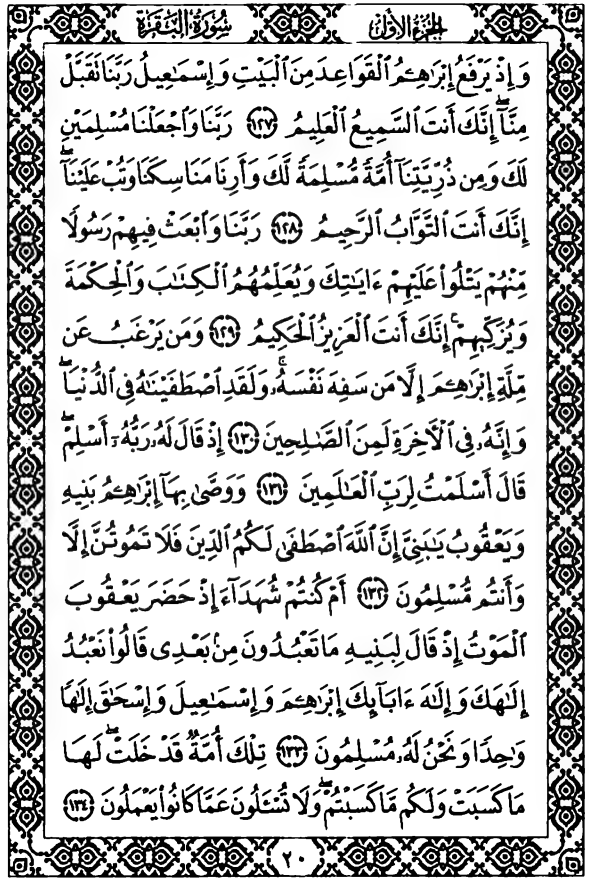 سُورَةُ البَقَرَةِ الجُزءُ الأَوَّلُ
وَإِذْ يَرْفَعُ إِبْرَٰهِـۧمُ ٱلْقَوَاعِدَ مِنَ ٱلْبَيْتِ وَإِسْمَـٰعِيلُ رَبَّنَا تَقَبَّلْ
مِنَّآ ۖ إِنَّكَ أَنتَ ٱلسَّمِيعُ ٱلْعَلِيمُ ١٢٧ رَبَّنَا وَٱجْعَلْنَا مُسْلِمَيْنِ
لَكَ وَمِن ذُرِّيَّتِنَآ أُمَّةً مُّسْلِمَةً لَّكَ وَأَرِنَا مَنَاسِكَنَا وَتُبْ عَلَيْنَآ ۖ
إِنَّكَ أَنتَ ٱلتَّوَّابُ ٱلرَّحِيمُ ١٢٨ رَبَّنَا وَٱبْعَثْ فِيهِمْ رَسُولًا
مِّنْهُمْ يَتْلُوا۟ عَلَيْهِمْ ءَايَـٰتِكَ وَيُعَلِّمُهُمُ ٱلْكِتَـٰبَ وَٱلْحِكْمَةَ
وَيُزَكِّيهِمْ ۚ إِنَّكَ أَنتَ ٱلْعَزِيزُ ٱلْحَكِيمُ ١٢٩ وَمَن يَرْغَبُ عَن
مِّلَّةِ إِبْرَٰهِـۧمَ إِلَّا مَن سَفِهَ نَفْسَهُۥ ۚ وَلَقَدِ ٱصْطَفَيْنَـٰهُ فِى ٱلدُّنْيَا ۖ
وَإِنَّهُۥ فِى ٱلْـَٔاخِرَةِ لَمِنَ ٱلصَّـٰلِحِينَ ١٣٠ إِذْ قَالَ لَهُۥ رَبُّهُۥٓ أَسْلِمْ ۖ
قَالَ أَسْلَمْتُ لِرَبِّ ٱلْعَـٰلَمِينَ ١٣١ وَوَصَّىٰ بِهَآ إِبْرَٰهِـۧمُ بَنِيهِ
وَيَعْقُوبُ يَـٰبَنِىَّ إِنَّ ٱللَّهَ ٱصْطَفَىٰ لَكُمُ ٱلدِّينَ فَلَا تَمُوتُنَّ إِلَّا
وَأَنتُم مُّسْلِمُونَ ١٣٢ أَمْ كُنتُمْ شُهَدَآءَ إِذْ حَضَرَ يَعْقُوبَ
ٱلْمَوْتُ إِذْ قَالَ لِبَنِيهِ مَا تَعْبُدُونَ مِنۢ بَعْدِى قَالُوا۟ نَعْبُدُ
إِلَـٰهَكَ وَإِلَـٰهَ ءَابَآئِكَ إِبْرَٰهِـۧمَ وَإِسْمَـٰعِيلَ وَإِسْحَـٰقَ إِلَـٰهًا
وَٰحِدًا وَنَحْنُ لَهُۥ مُسْلِمُونَ ١٣٣ تِلْكَ أُمَّةٌ قَدْ خَلَتْ ۖ لَهَا
مَا كَسَبَتْ وَلَكُم مَّا كَسَبْتُمْ ۖ وَلَا تُسْـَٔلُونَ عَمَّا كَانُوا۟ يَعْمَلُونَ ١٣٤
٢٠